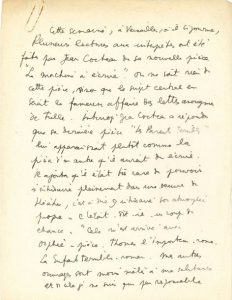 Cette semaine, à Versailles, où il séjourne,
plusieurs lectures aux interprètes ont été
faites par Jean Cocteau de sa nouvelle pièce
"La machine à écrire". On ne sait rien de
cette pièce, sinon que le sujet central en
serait la fameuse affaire des lettres anonymes
de Tulle. Jean Cocteau a répondu
que sa dernière pièce "Les Parents terribles"
lui apparaissait plutôt comme la
pièce d'un autre qu'il aurait dû écrire.
Il ajouta qu'il était très rare de pouvoir
s'exprimer pleinement dans une œuvre de
théâtre, c'est à dire
propre - c'était un coup de
chance. - "Cela m'est arrivé avec
Orphée - pièce. Thomas l'imposteur - roman.
Les Enfants Terribles - roman. Mes autres
ouvrages sont moins mêlés à ma
et je ne suis que responsable